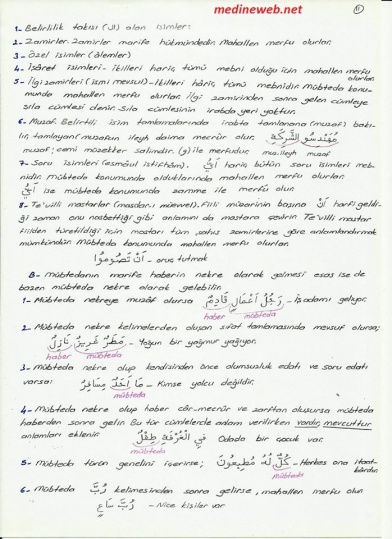 medineweb.net
11
1- Belirlilik takısı (ال) alan isimler:
2- Zamirler. Zamirler marife hükmündedir. Mahallen merfu olurlar.
3- Özel isimler (âlemler)
4- İşâret isimleri - ikilleri hariç, tümü mebni olduğu için mahallen merfu olurlar
5- İlgi zamirleri (ismi mevsul) - ikilleri hâriç, tümü mebnidir. Mübteda konu-
munda mahallen merfu olurlar. İlgi zamirinden sonra gelen cümleye
sıla cümlesi denir. Sıla cümlesinin irabda yeri yoktur.
6- Muzaf. Belirtili isim tamlamalarında irabta tamlanana (muzaf) bakı-
lır, tamlayan (muzafun ileyh) daima mecrûr olur. مُهَنْدِسُو الشَّرِكَةِ
muzaf: cemi müzekker salimdir. (و) ile merfudur. muz.ileyh muzaf
7- Soru isimleri (esmâul istifhâm). أَيُّ hariç, bütün soru isimleri meb-
nidir. Mübteda konumunda olduklarında mahallen merfu olurlar.
أَيُّ ise mübteda konumunda zamme ile merfû olur.
8- Te'villi mastarlar (masdarı müevvel). Fiili müzarinin başına أَنْ harfi geldi-
ği zaman onu nasbettiği gibi anlamını da mastara çevirir. Te'villi mastar
fiilden türetildiği için mastarı tüm şahıs zamirlerine göre anlamlandırmak
mümkündür. Mübteda konumunda mahallen merfu olurlar.
أَنْ تَصُومُوا - oruç tutmak
B- Mübtedanın marife haberin nekre olarak gelmesi esas ise de
bazen mübteda nekre olarak gelebilir.
1- Mübteda nekreye muzâf olursa رَجُلُ أَعْمَالٍ قَادِمٌ - İş adamı geliyor.
haber mübteda
2- Mübteda nekre kelimelerden oluşan sıfat tamlamasında mevsuf olursa;
مَطَرٌ غَزِيرٌ نَازِلٌ - Yoğun bir yağmur yağıyor.
haber mübteda
3- Mübteda nekre olup kendisinden önce olumsuzluk edatı ve soru edatı
varsa: مَا أَحَدٌ مُسَافِرٌ - Kimse yolcu değildir.
mübteda
4- Mübteda nekre olup haber câr-mecrûr ve zarftan oluşursa mübteda
haberden sonra gelir. Bu tür cümlelerde anlam verilirken vardır, mevcuttur
anlamları eklenir. فِي الْغُرْفَةِ طِفْلٌ Odada bir çocuk var.
mübteda
5- Mübteda türün genelini içerirse; كُلٌّ لَهُ مُطِيعُونَ - Herkes ona itaat-
kârdır.
mübteda
6- Mübteda رُبَّ kelimesinden sonra gelirse, mahallen merfu olur.
رُبَّ سَاعٍ - Nice kişiler var